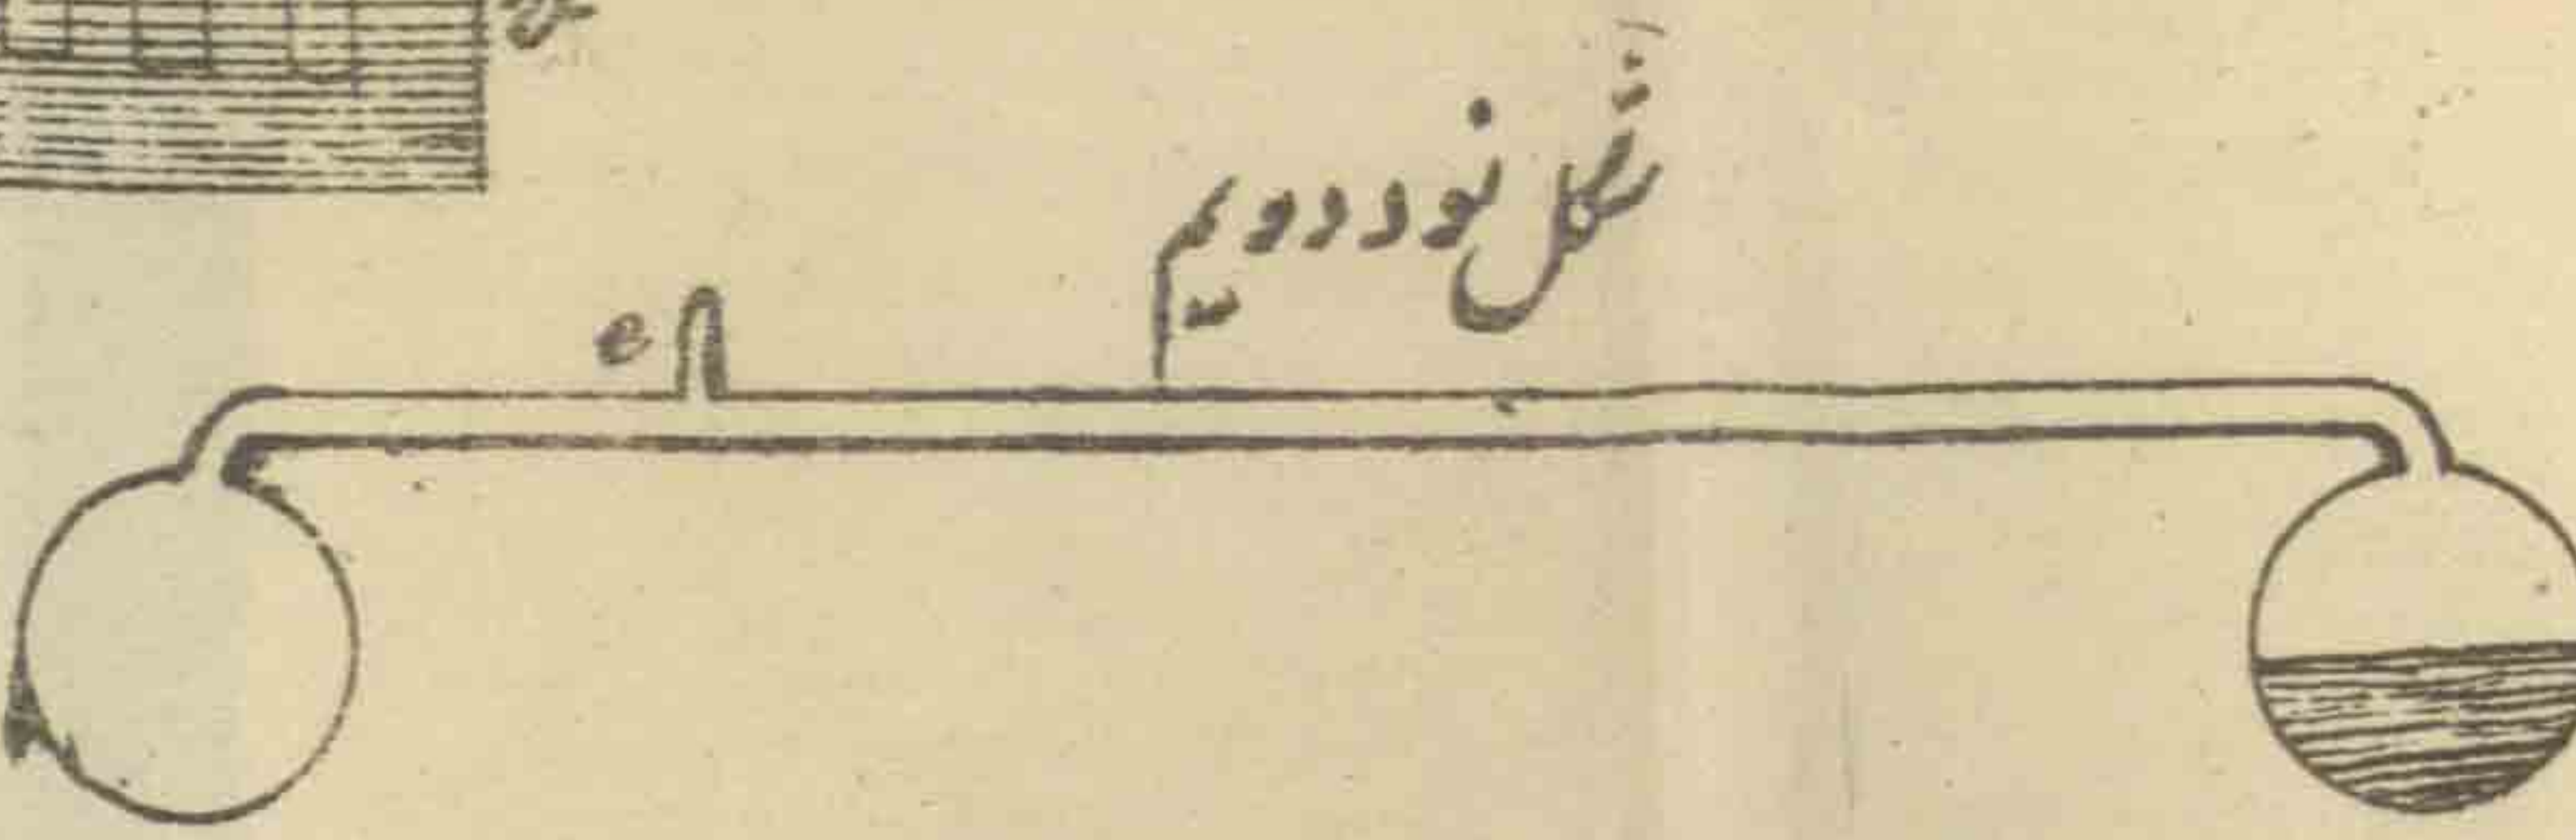 شکل نود دویم
e